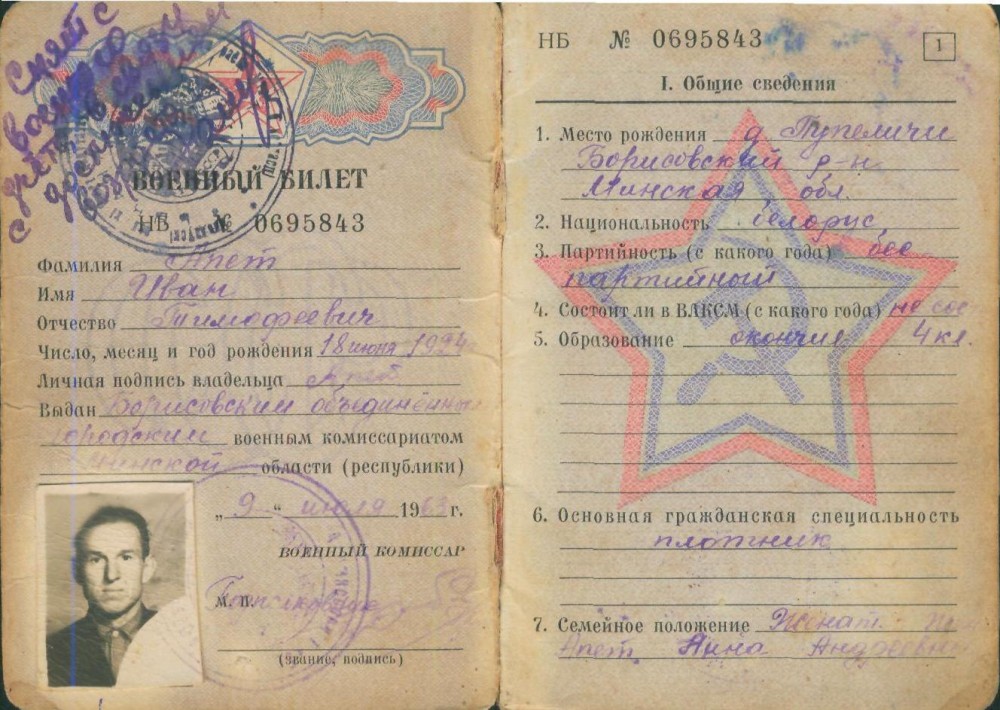 Снят с
воен
ВОЕННЫЙ БИЛЕТ
НБ № 0695843
Фамилия Апет
Имя Иван
Отчество Тимофеевич
Число, месяц и год рождения 18 июня 1924
Личная подпись владельца Апет
Выдан Борисовским объединённым
городским военным комиссариатом
Минской области (республики)
„ 9 “ июля 1963 г.
ВОЕННЫЙ КОМИССАР
М. П.
(звание, подпись)
НБ № 0695843
1
I. Общие сведения
1. Место рождения д. Тупеличи
Борисовский р-н
Минская обл.
2. Национальность белорус
3. Партийность (с какого года) бес
партийный
4. Состоит ли в ВЛКСМ (с какого года) не сос
5. Образование окончил 4 кл.
6. Основная гражданская специальность
плотник
7. Семейное положение Женат
Апет Анна Андреевна